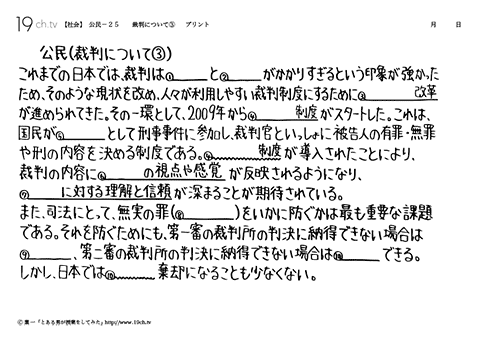 19ch.tv 【社会】 公民－２５ 裁判について③ プリント 月 日
公民(裁判について③)
これまでの日本では、裁判は①______と②______がかかりすぎるという印象が強かった
ため、そのような現状を改め、人々が利用しやすい裁判制度にするために③______改革
が進められてきた。その一環として、2009年から④______制度がスタートした。これは、
国民が⑤______として刑事事件に参加し、裁判官といっしょに被告人の有罪・無罪
や刑の内容を決める制度である。④______制度が導入されたことにより、
裁判の内容に⑥______の視点や感覚が反映されるようになり、
⑦______に対する理解と信頼が深まることが期待されている。
また、司法にとって、無実の罪(⑧______)をいかに防ぐかは最も重要な課題
である。それを防ぐためにも、第一審の裁判所の判決に納得できない場合は
⑨______、第二審の裁判所の判決に納得できない場合は⑩______できる。
しかし、日本では⑩______棄却になることも少なくない。
© 葉一「とある男が授業をしてみた」 http://www.19ch.tv